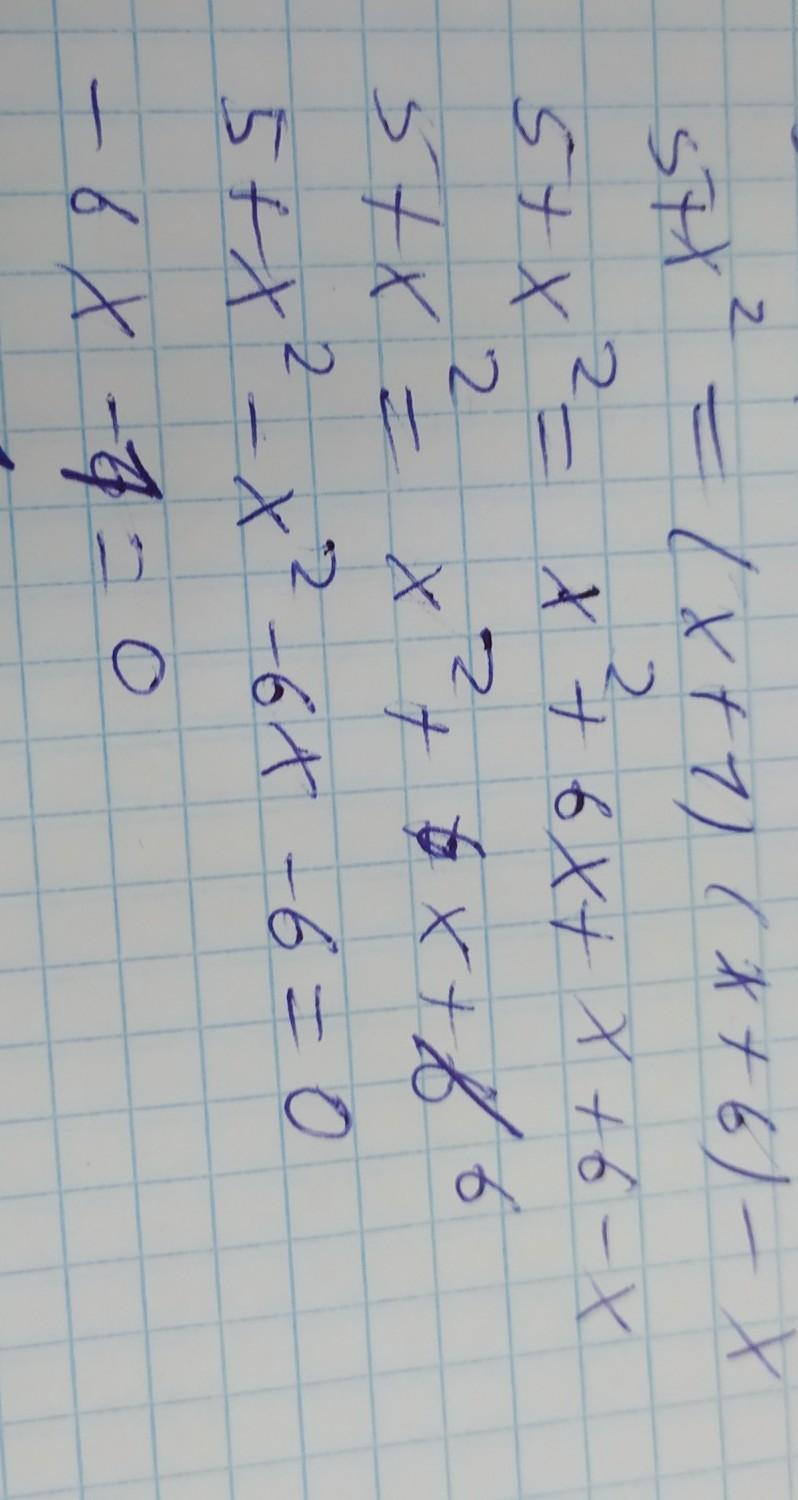 5+x² = (x+1)(x+6)-x
5+x² = x²+6x+x+6-x
5+x² = x²+6x+6
5+x²-x²-6x-6=0
-6x-1=0